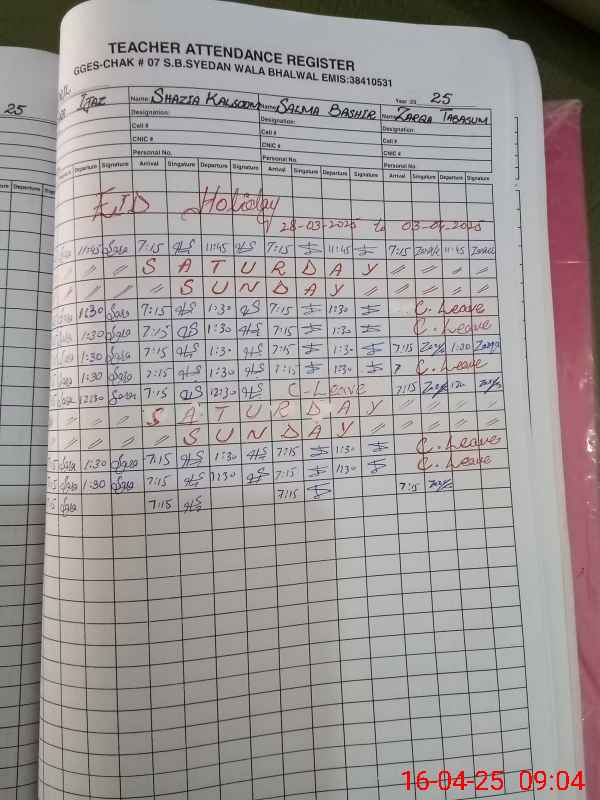 TEACHER ATTENDANCE REGISTER
GGES-CHAK # 07 S.B.SYEDAN WALA BHALWAL EMIS:38410531
25 Year :20 25
IJAZ Name: SHAZIA KALSOOM Name: SALMA BASHIR Name: ZARQA TABASUM
Designation: Designation: Designation:
Cell # Cell # Cell #
CNIC # CNIC # CNIC #
Personal No. Personal No. Personal No.
Departure Signature Arrival Singature Departure Signature Arrival Singature Departure Signature Arrival Singature Departure Signature
EID Holiday
28-03-2025 to 03-04-2025
11:45 Sara 7:15 11:45 7:15 11:45 7:15 Zarqa 11:45 Zarqa
// // // S A T U R D A Y // // // //
// // // S U N D A Y // // // //
1:30 Sara 7:15 1:30 7:15 1:30 C. Leave
1:30 Sara 7:15 1:30 7:15 1:30 C. Leave
1:30 Sara 7:15 1:30 7:15 1:30 7:15 Zarqa 1:30 Zarqa
1:30 Sara 7:15 1:30 7:15 1:30 C. Leave
12:30 Sara 7:15 12:30 C-Leave 7:15 Zarqa
// // // S A T U R D A Y // // // //
// // // S U N D A Y // // // //
Sara 1:30 Sara 7:15 1:30 7:15 1:30 C. Leave
Sara 1:30 Sara 7:15 1:30 7:15 1:30 C. Leave
Sara 7:15 7:15 7:15 Zarqa
16-04-25 09:04